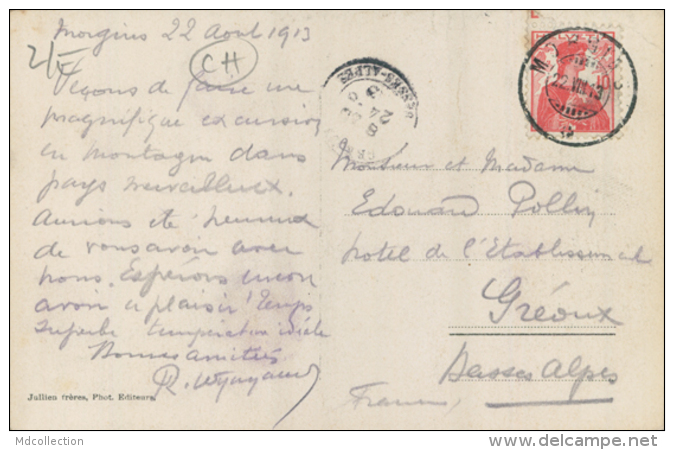 Morgins 22 Aout 1913
CH
de faire une
magnifique excursion
en montagne dans
pays merveilleux.
Aurions été heureux
de vous avoir avec
nous. Espérons
avoir ce plaisir! Temps
superbe température idéale
Bonnes amitiés
R.
Jullien frères, Phot. Editeurs
BASSES-ALPES
HELVETIA
MORGINS
22.VIII.13
Monsieur et Madame
Edouard Pollin
hotel de l'Etablissement
Gréoux
Basses Alpes
France
Mdcollection
www.delcampe.net